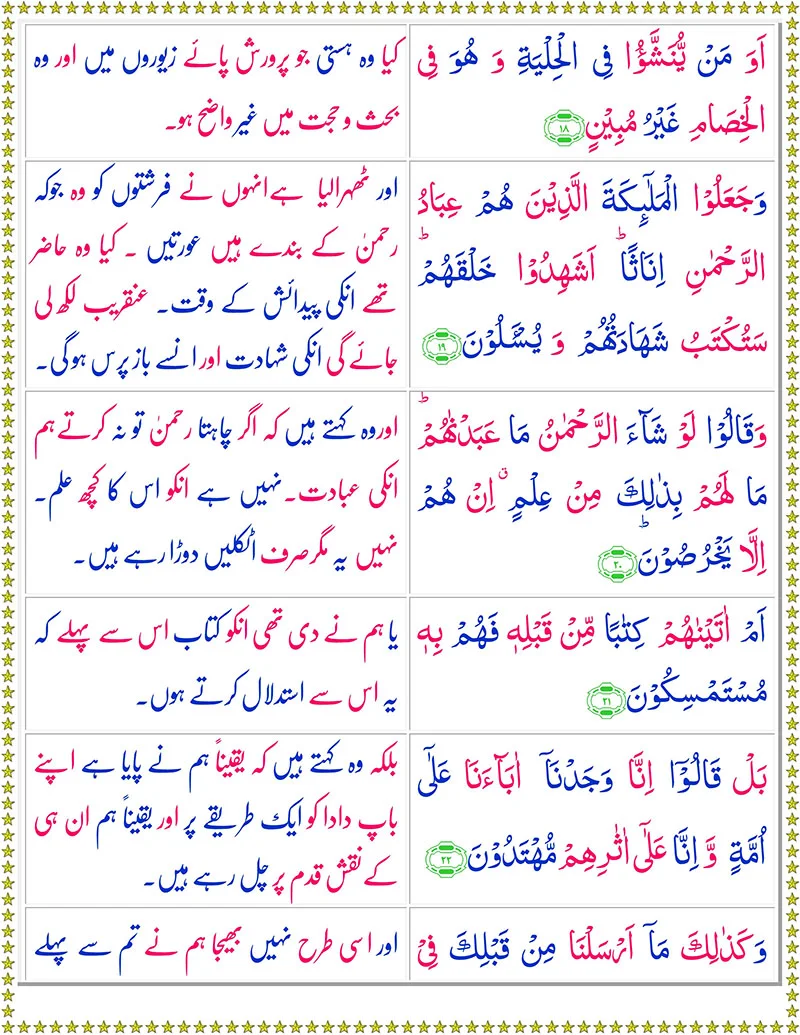 اَوَ مَنْ يُّنَشَّؤُا فِى الْحِلْيَةِ وَ هُوَ فِى
الْخِصَامِ غَيْرُ مُبِيْنٍ ﴿۱۸﴾
کیا وہ ہستی جو پرورش پائے زیوروں میں اور وہ
بحث و حجت میں غیر واضح ہو۔
وَجَعَلُوْا الْمَلٰٓئِكَةَ الَّذِيْنَ هُمْ عِبَادُ
الرَّحْمٰنِ اِنَاثًا ؕ اَشَهِدُوْا خَلْقَهُمْ ؕ
سَتُكْتَبُ شَهَادَتُهُمْ وَ يُسْـَٔلُوْنَ ﴿۱۹﴾
اور ٹھہرالیا ہے انہوں نے فرشتوں کو وہ جوکہ
رحمنٰ کے بندے ہیں عورتیں ۔ کیا وہ حاضر
تھے انکی پیدائش کے وقت۔ عنقریب لکھ لی
جائے گی انکی شہادت اور انسے باز پرس ہوگی۔
وَقَالُوْا لَوْ شَآءَ الرَّحْمٰنُ مَا عَبَدْنٰهُمْ ؕ
مَا لَهُمْ بِذٰلِكَ مِنْ عِلْمٍ ۚ اِنْ هُمْ
اِلَّا يَخْرُصُوْنَ ؕ ﴿۲۰﴾
اور وہ کہتے ہیں کہ اگر چاہتا رحمنٰ تو نہ کرتے ہم
انکی عبادت۔ نہیں ہے انکو اس کا کچھ علم۔
نہیں یہ مگر صرف اٹکلیں دوڑا رہے ہیں۔
اَمْ اٰتَيْنٰهُمْ كِتٰبًا مِّنْ قَبْلِهٖ فَهُمْ بِهٖ
مُسْتَمْسِكُوْنَ ﴿۲۱﴾
یا ہم نے دی تھی انکو کتاب اس سے پہلے کہ
یہ اس سے استدلال کرتے ہوں۔
بَلْ قَالُوْٓا اِنَّا وَجَدْنَآ اٰبَآءَنَا عَلٰٓى
اُمَّةٍ وَّ اِنَّا عَلٰٓى اٰثٰرِهِمْ مُّهْتَدُوْنَ ﴿۲۲﴾
بلکہ وہ کہتے ہیں کہ یقیناً ہم نے پایا ہے اپنے
باپ دادا کو ایک طریقے پر اور یقیناً ہم ان ہی
کے نقش قدم پر چل رہے ہیں۔
وَكَذٰلِكَ مَآ اَرْسَلْنَا مِنْ قَبْلِكَ فِىْ
اور اسی طرح نہیں بھیجا ہم نے تم سے پہلے